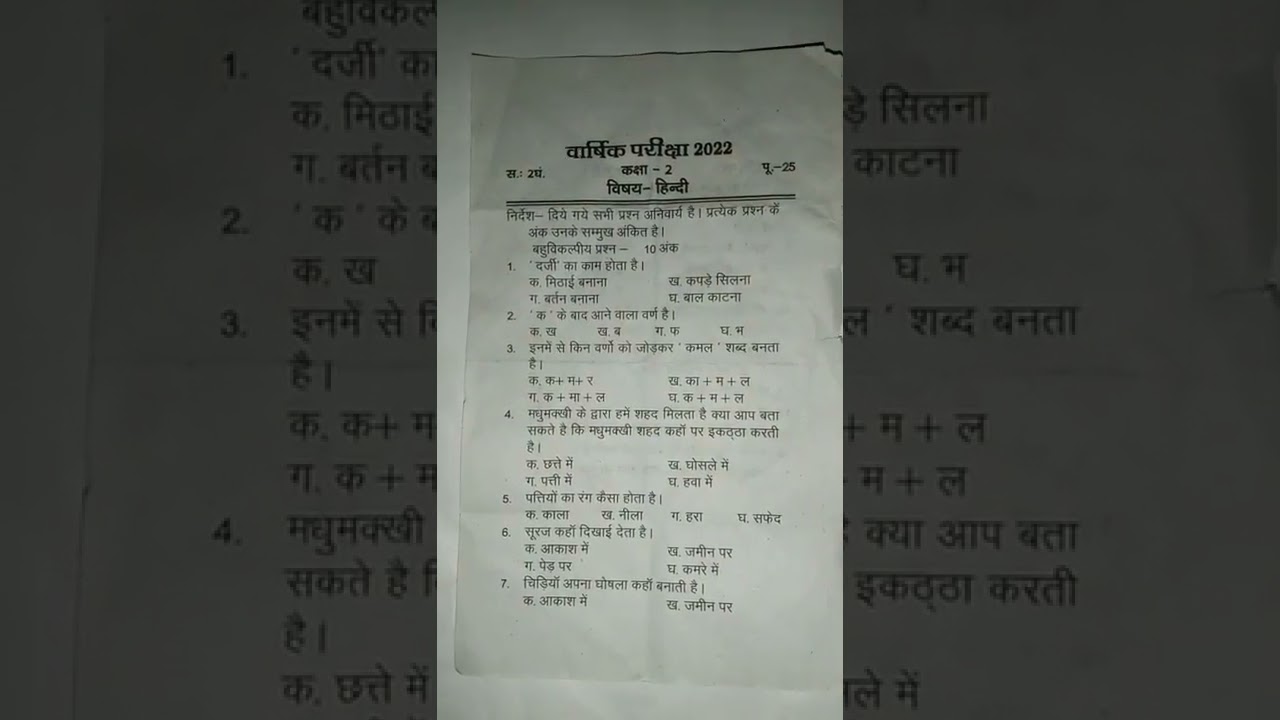 वार्षिक परीक्षा 2022
स.: 2घं. कक्षा - 2 पू.-25
विषय- हिन्दी
निर्देश- दिये गये सभी प्रश्न अनिवार्य है। प्रत्येक प्रश्न कें
अंक उनके सम्मुख अंकित है।
बहुविकल्पीय प्रश्न - 10 अंक
1. ' दर्जी' का काम होता है।
क. मिठाई बनाना ख. कपड़े सिलना
ग. बर्तन बनाना घ. बाल काटना
2. ' क ' के बाद आने वाला वर्ण है।
क. ख ख. ब ग. फ घ. भ
3. इनमें से किन वर्णो को जोड़कर ' कमल ' शब्द बनता
है।
क. क+ म+ र ख. का + म + ल
ग. क + मा + ल घ. क + म + ल
4. मधुमक्खी के द्वारा हमें शहद मिलता है क्या आप बता
सकते है कि मधुमक्खी शहद कहॉ पर इकठ्ठा करती
है।
क. छत्ते में ख. घोसले में
ग. पत्ती में घ. हवा में
5. पत्तियों का रंग कैसा होता है।
क. काला ख. नीला ग. हरा घ. सफेद
6. सूरज कहॉ दिखाई देता है।
क. आकाश में ख. जमीन पर
ग. पेड़ पर घ. कमरे में
7. चिड़ियॉ अपना घोषला कहॉ बनाती है।
क. आकाश में ख. जमीन पर